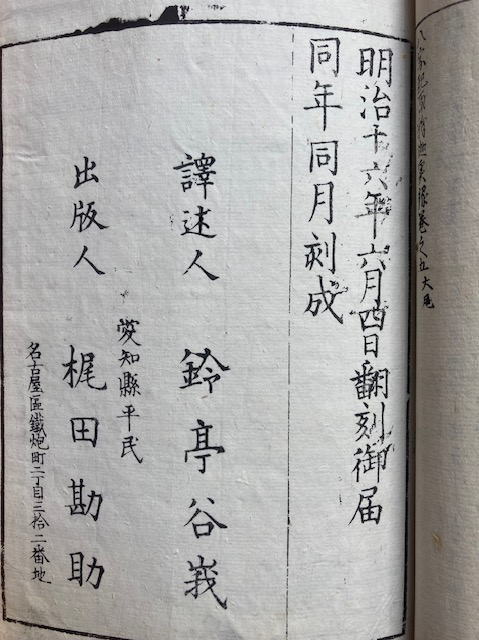 卷之五大尾
明治十六年六月四日翻刻御届
同年同月刻成
譯述人 鈴亭谷峩
愛知縣平民
出版人 梶田勘助
名古屋區鐵炮町二丁目三拾二番地